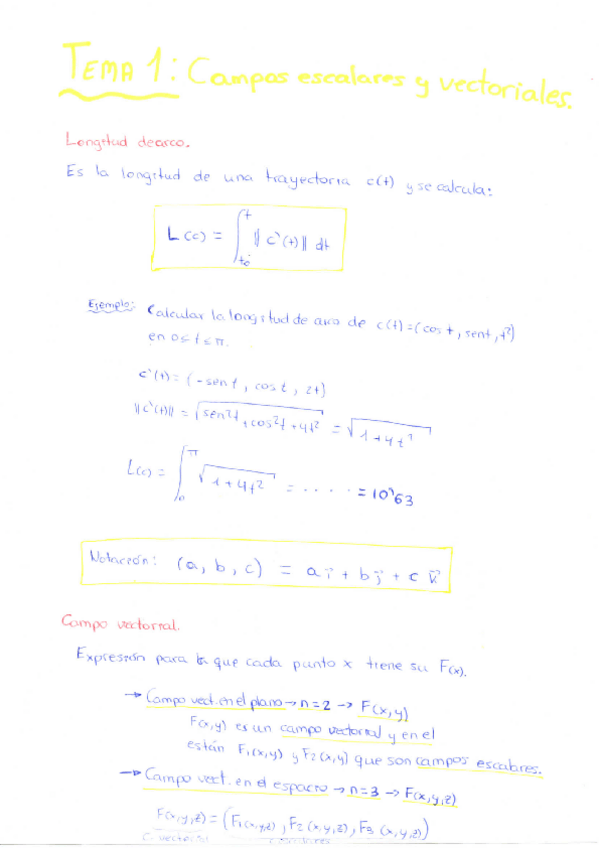 TEMA 1: Campos escalares y vectoriales.
Longitud de arco.
Es la longitud de una trayectoria c(t) y se calcula:
L(c) = ∫_{t₀}^{t} ||c'(t)|| dt
Ejemplo: Calcular la longitud de arco de c(t)=(cos t, sen t, t²)
en 0≤t≤π.
c'(t) = (-sen t, cos t, 2t)
||c'(t)|| = √(sen²t + cos²t + 4t²) = √(1+4t²)
L(c) = ∫_{0}^{π} √(1+4t²) = ..... = 10'63
Notación: (a, b, c) = a i⃗ + b j⃗ + c k⃗
Campo vectorial.
Expresión para la que cada punto x tiene su F(x).
→ Campo vect. en el plano → n=2 → F(x,y)
F(x,y) es un campo vectorial y en el
están F₁(x,y) y F₂(x,y) que son campos escalares.
→ Campo vect. en el espacio → n=3 → F(x,y,z)
F(x,y,z) = (F₁(x,y,z), F₂(x,y,z), F₃(x,y,z))